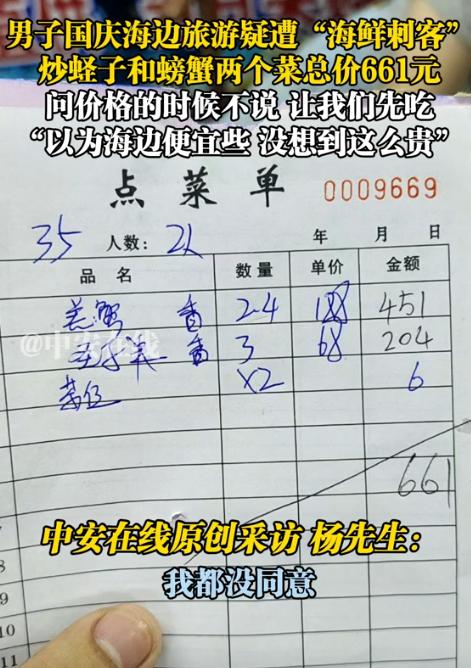 男子国庆海边旅游疑遭“海鲜刺客”
炒蛏子和螃蟹两个菜总价661元
问价格的时候不说 让我们先吃
“以为海边便宜些 没想到这么贵”
点菜单 0009669
35 人数：2人 年 月 日
品名 数量 单价 金额
蟹 香 2-4 188 451
香 3 68 204
茶位 X2 6
@中安在线
661
中安在线原创采访 杨先生：
我都没同意
8
9
10
11